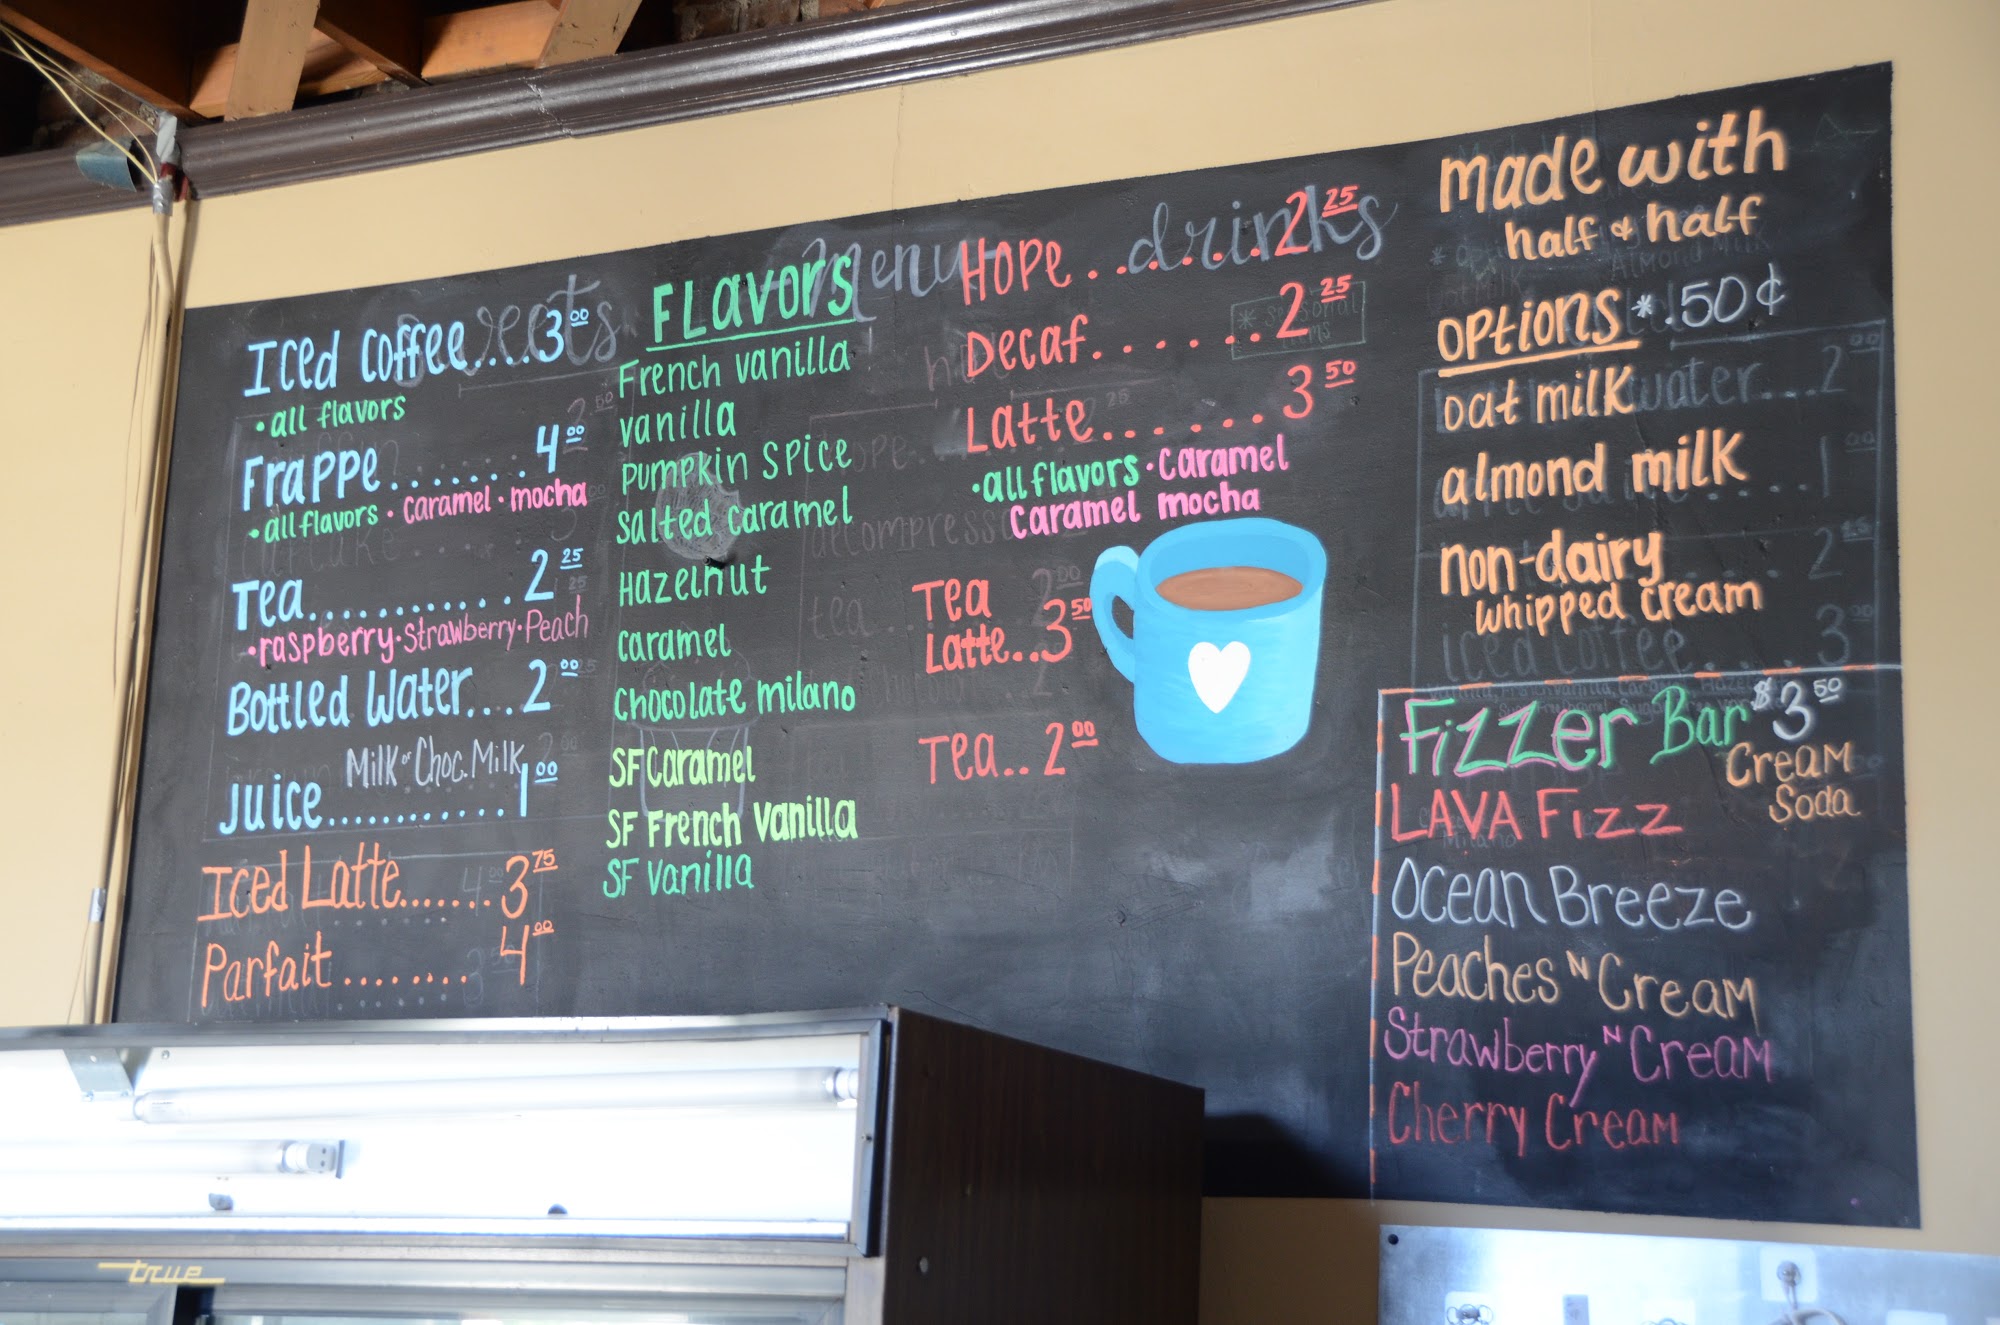 Iced Coffee....3 00
• all flavors
Frappe.......4 00
• all flavors • Caramel • mocha
Tea............2 25
• raspberry • Strawberry • Peach
Bottled Water...2 00
Milk or Choc. Milk
Juice...........1 00
Iced Latte.......3 75
Parfait........4 00
sweets
Menu
drinks
Flavors
French vanilla
vanilla
Pumpkin Spice
Salted caramel
Hazelnut
Caramel
Chocolate milano
SF Caramel
SF French Vanilla
SF Vanilla
Hope........2 25
* seasonal
items
Decaf......2 25
Latte......3 50
• all flavors • Caramel
Caramel mocha
Tea
Latte..3 50
Tea..2 00
made with
half & half
Options * .50¢
oat milk
almond milk
non-dairy
whipped cream
water...2 00
iced coffee....3 00
Fizzer Bar $3 50
Cream
Soda
LAVA Fizz
Ocean Breeze
Peaches N Cream
Strawberry N Cream
Cherry Cream
true